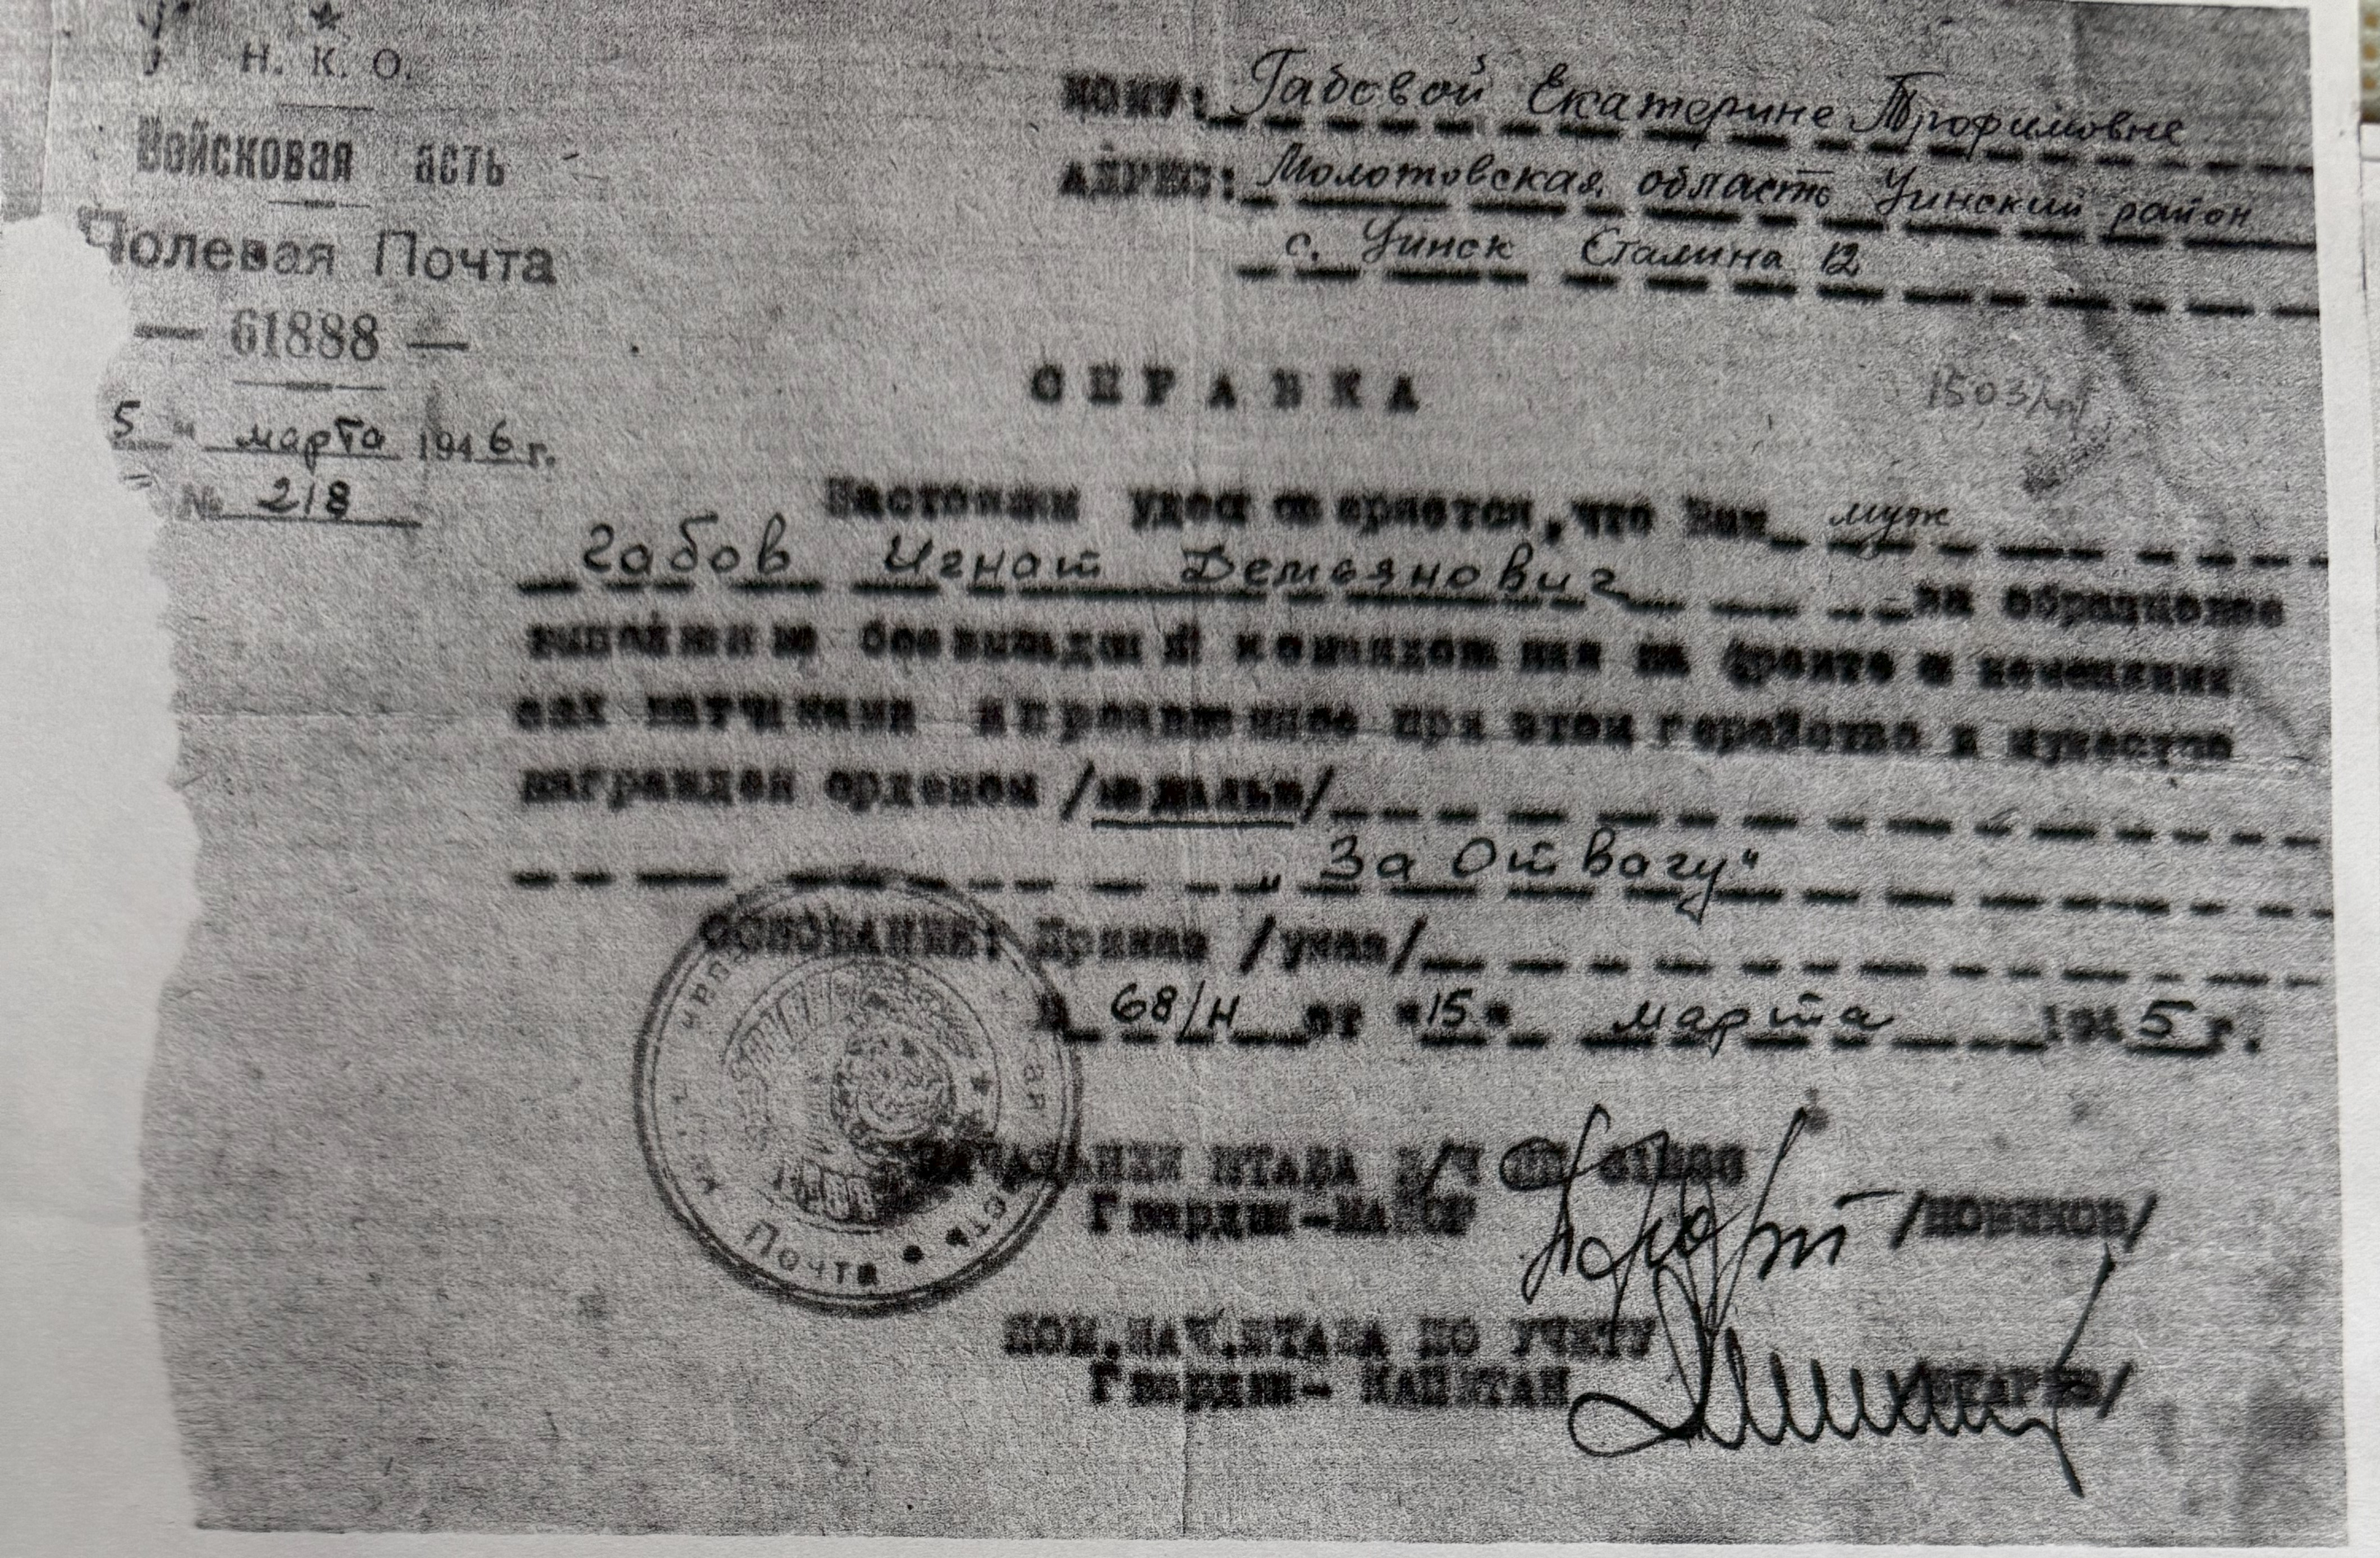 Н. К. О.
Войсковая асть
Полевая Почта
— 61888 —
5 " марта 1946 г.
№ 218
КОМУ: Габовой Екатерине Трофимовне
АДРЕС: Молотовская область Уинский район
с. Уинск Сталина 12
СПРАВКА
Настоящим удостоверяется, что Ваш муж
Габов Игнат Демьянович за образцовое
выполнение боевых заданий командования на фронте с немецкими
захватчиками и проявленное при этом геройство и мужество
награжден орденом /медалью/
"За Отвагу"
ОСНОВАНИЕ: Приказ /указ/
№ 68/н от "15" марта 1945 г.
НАЧАЛЬНИК ШТАБА В/Ч ПП 61888
Гвардии-МАЙОР /НОВИКОВ/
ПОМ.НАЧ.ШТАБА ПО УЧЕТУ
Гвардии- КАПИТАН
Почта